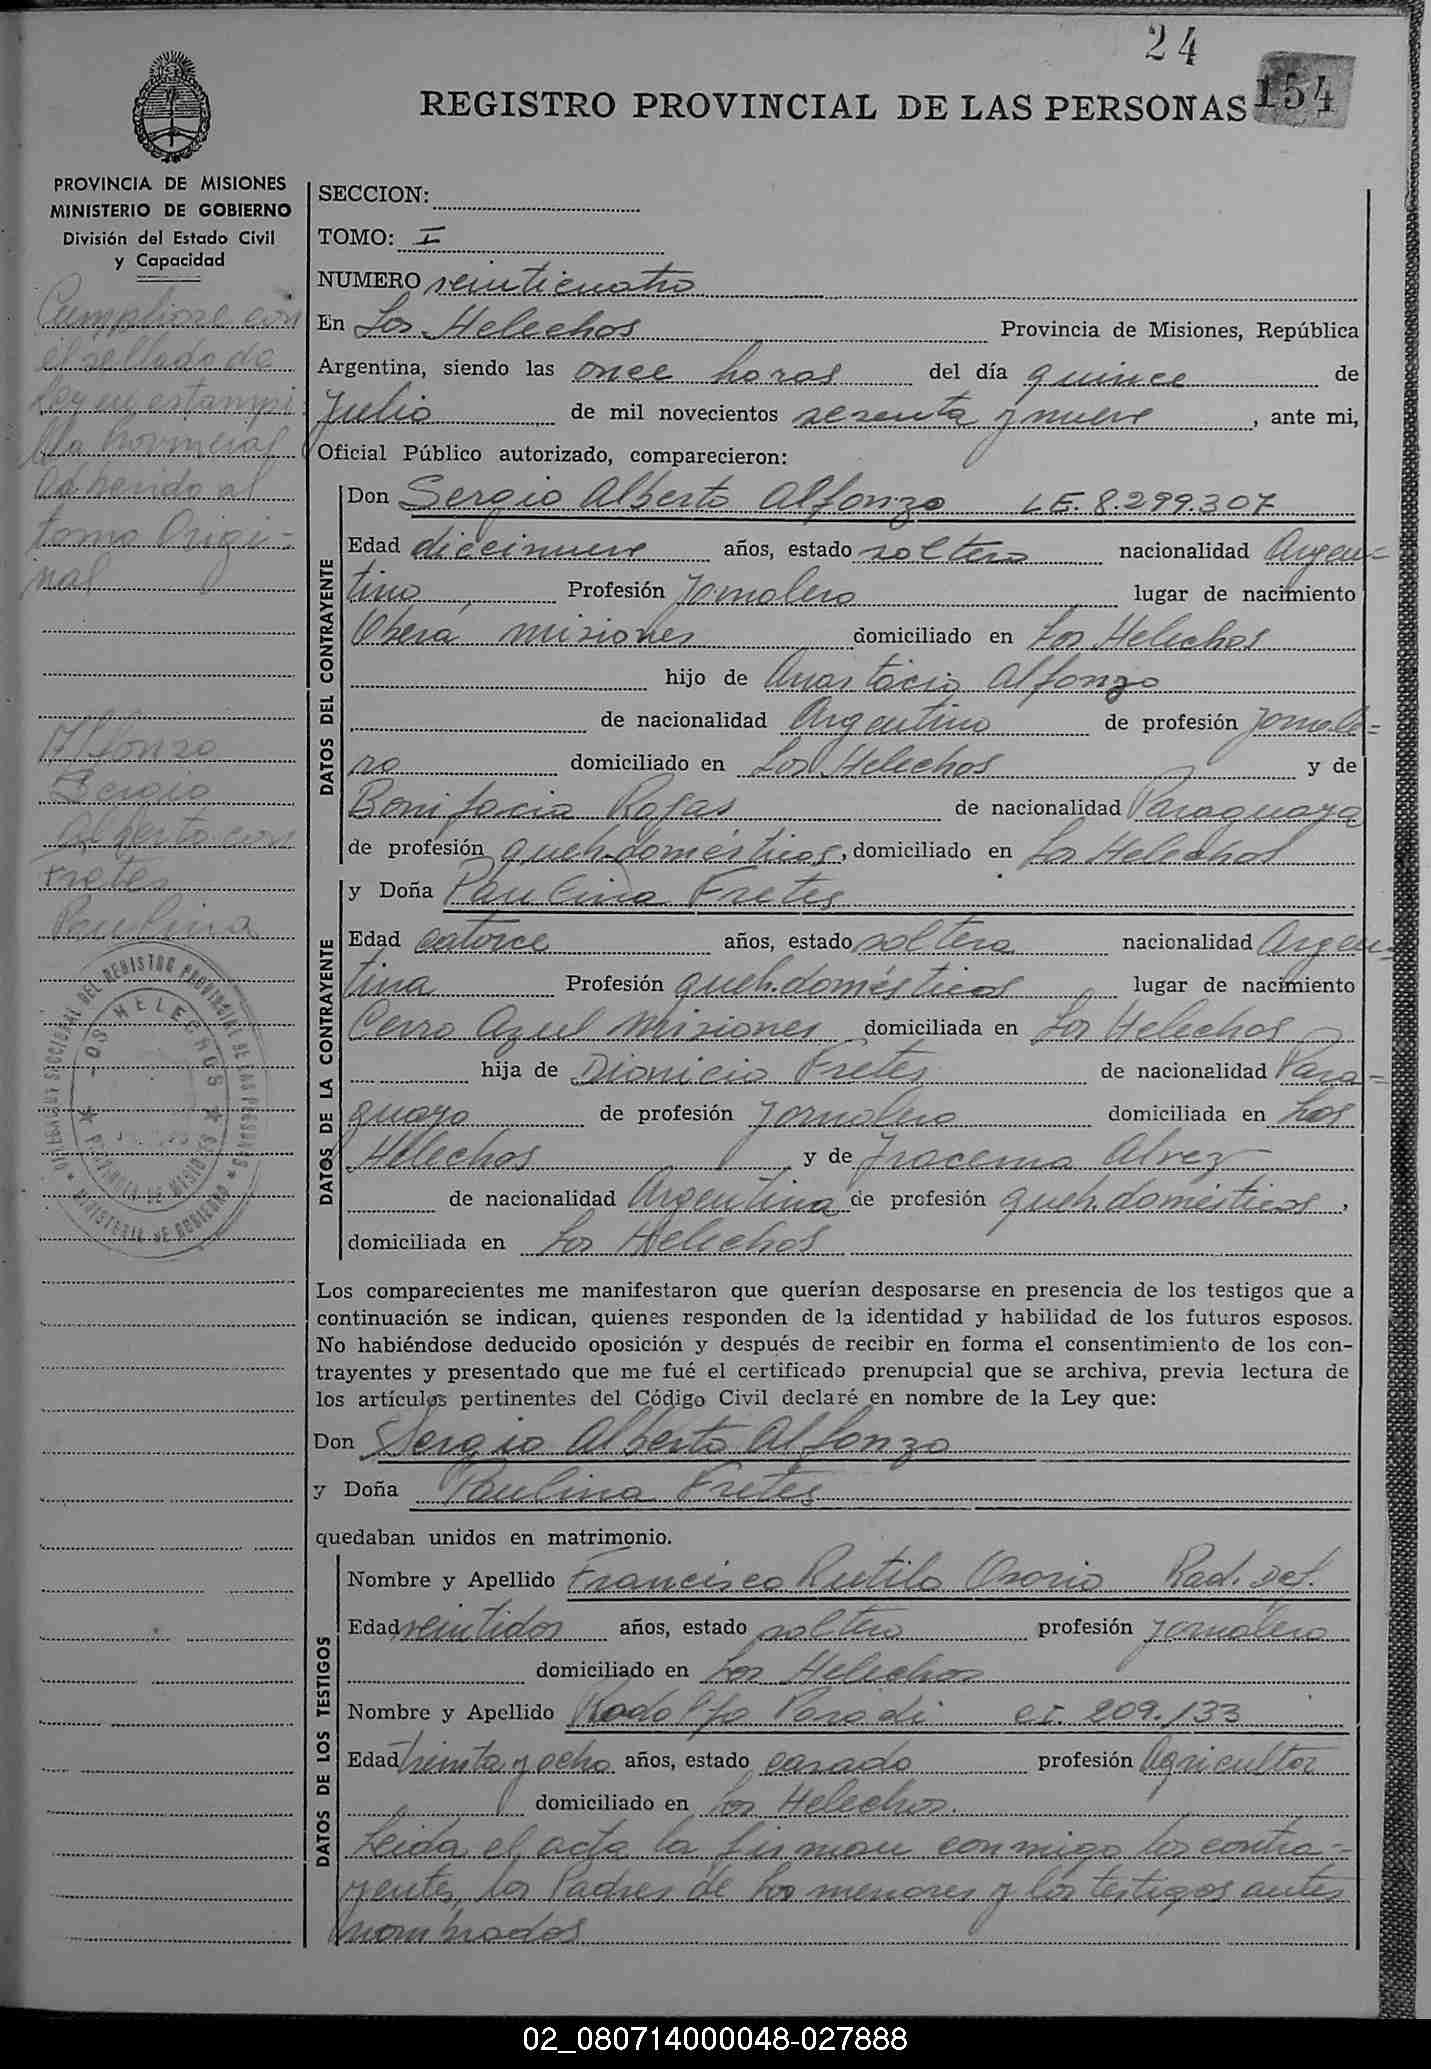 24
154
REGISTRO PROVINCIAL DE LAS PERSONAS
PROVINCIA DE MISIONES
MINISTERIO DE GOBIERNO
División del Estado Civil
y Capacidad
Cumplióse con
el sellado de
Ley en estampi
lla provincial
adherido al
tomo Origi-
nal
Alfonzo
Sergio
Alberto con
Fretes
Paulina
DELEGACION SECCIONAL DEL REGISTRO PROVINCIAL DE LAS PERSONAS
LOS HELECHOS
PROVINCIA DE MISIONES
MINISTERIO DE GOBIERNO
SECCION:
TOMO: I
NUMERO veinticuatro
En Los Helechos Provincia de Misiones, República
Argentina, siendo las once horas del día quince de
Julio de mil novecientos sesenta y nueve, ante mi,
Oficial Público autorizado, comparecieron:
DATOS DEL CONTRAYENTE
Don Sergio Alberto Alfonzo L.E. 8.299.307
Edad diecinueve años, estado soltero nacionalidad Argen-
tino, Profesión Jornalero lugar de nacimiento
Oberá Misiones domiciliado en Los Helechos
hijo de Anastacio Alfonzo
de nacionalidad Argentino de profesión Jornale-
ro domiciliado en Los Helechos y de
Bonifacia Rojas de nacionalidad Paraguaya
de profesión queh. domésticos, domiciliado en Los Helechos
DATOS DE LA CONTRAYENTE
y Doña Paulina Fretes
Edad catorce años, estado soltera nacionalidad Argen-
tina Profesión queh. domésticos lugar de nacimiento
Cerro Azul Misiones domiciliada en Los Helechos
hija de Dionicio Fretes de nacionalidad Para-
guayo de profesión Jornalero domiciliada en Los
Helechos y de Iracema Alvez
de nacionalidad Argentina de profesión queh. domésticos,
domiciliada en Los Helechos
Los comparecientes me manifestaron que querían desposarse en presencia de los testigos que a
continuación se indican, quienes responden de la identidad y habilidad de los futuros esposos.
No habiéndose deducido oposición y después de recibir en forma el consentimiento de los con-
trayentes y presentado que me fué el certificado prenupcial que se archiva, previa lectura de
los artículos pertinentes del Código Civil declaré en nombre de la Ley que:
Don Sergio Alberto Alfonzo
y Doña Paulina Fretes
quedaban unidos en matrimonio.
DATOS DE LOS TESTIGOS
Nombre y Apellido Francisco Rutilo Osorio Rad. Def.
Edad veintidos años, estado soltero profesión Jornalero
domiciliado en Los Helechos
Nombre y Apellido Rodolfo Paredi C.I. 209.133
Edad treinta y ocho años, estado casado profesión Agricultor
domiciliado en Los Helechos.
Leida el acta la firman conmigo los contra-
yentes, los Padres de los menores y los testigos antes
nombrados
02_080714000048-027888